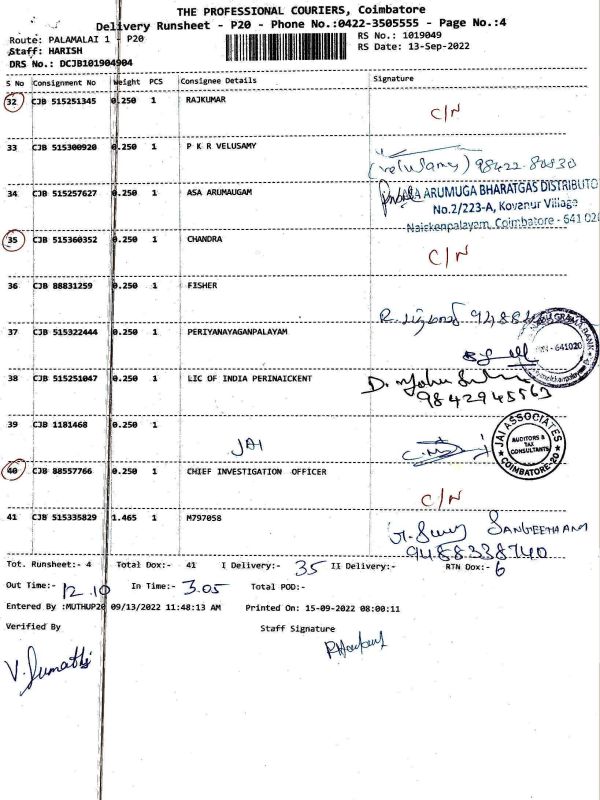 THE PROFESSIONAL COURIERS, Coimbatore
Delivery Runsheet - P20 - Phone No.:0422-3505555 - Page No.:4
Route: PALAMALAI 1 - P20
RS No.: 1019049
Staff: HARISH
RS Date: 13-Sep-2022
DRS No.: DCJB101904904
S No Consignment No Weight PCS Consignee Details Signature
32 CJB 515251345 0.250 1 RAJKUMAR C/N
33 CJB 515300920 0.250 1 P K R VELUSAMY
(velusamy) 98422-80830
34 CJB 515257627 0.250 1 ASA ARUMAUGAM
ARUMUGA BHARATGAS DISTRIBUTO
No.2/223-A, Kovanur Village
Naickenpalayam, Coimbatore - 641 020
35 CJB 515360352 0.250 1 CHANDRA C/N
36 CJB 88831259 0.250 1 FISHER
37 CJB 515322444 0.250 1 PERIYANAYAGANPALAYAM
GRAMA BANK
- 641020
38 CJB 515251047 0.250 1 LIC OF INDIA PERINAICKENT
9842945563
39 CJB 1181468 0.250 1
JAI
JAI ASSOCIATES
AUDITORS & TAX CONSULTANTS
COIMBATORE-20
40 CJB 88557766 0.250 1 CHIEF INVESTIGATION OFFICER C/N
41 CJB 515335829 1.465 1 M797058
SANGEETHAM
9488338740
Tot. Runsheet:- 4 Total Dox:- 41 I Delivery:- 35 II Delivery:- RTN Dox:- 6
Out Time:- 12.10 In Time:- 3.05 Total POD:-
Entered By :MUTHUP20 09/13/2022 11:48:13 AM Printed On: 15-09-2022 08:00:11
Verified By Staff Signature
V. Sumathi